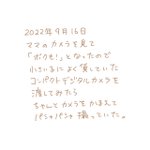 2022年9月16日
ママのカメラを見て
「ボクも!」となったので
小さいころによく貸していた
コンパクトデジタルカメラを
渡してみたら
ちゃんとカメラをかまえて
パシャパシャ撮っていた。